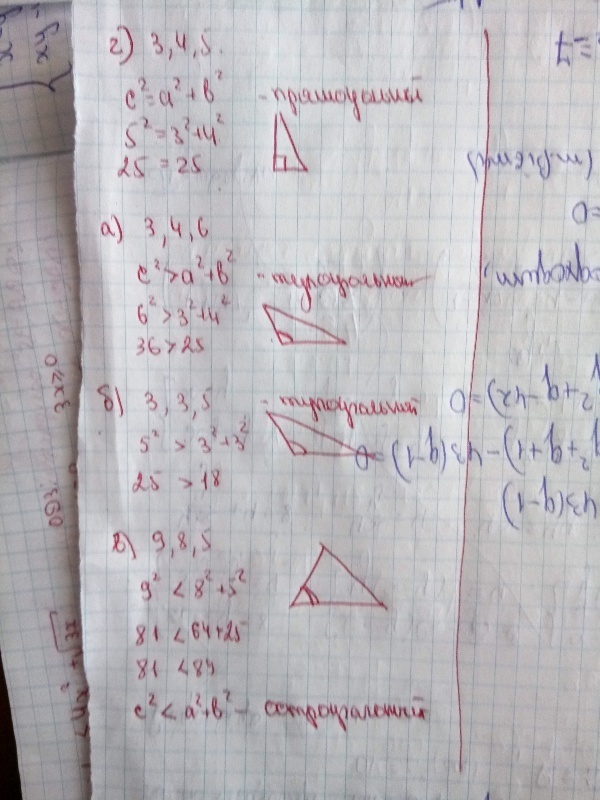 г) 3, 4, 5.
c² = a² + b² - прямоугольный
5² = 3² + 4²
25 = 25
а) 3, 4, 6
c² > a² + b² - тупоугольный
6² > 3² + 4²
36 > 25
б) 3, 3, 5 - тупоугольный
5² > 3² + 3²
25 > 18
в) 9, 8, 5
9² < 8² + 5²
81 < 64 + 25
81 < 89
c² < a² + b² - остроугольный
43(q-1)
q² + q + 1) - 43(q-1) = 0
² + q - 42) = 0
= 0
= 7
3x ≥ 0
ОДЗ: